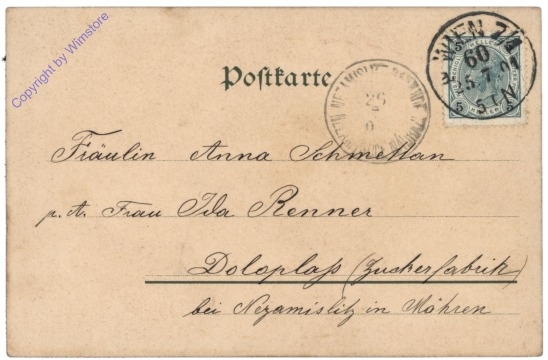 Copyright by Wimstore
Postkarte
WIEN 7/1
60
5 5TN 5
Fräulein Anna Schmettan
p. A. Frau Ida Renner
Doloplaß (Zuckerfabrik)
bei Nezamislitz in Mähren